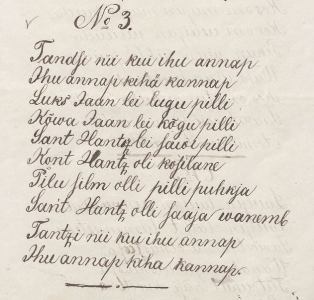 No 3.
Tandsi nii kui ihu annap
Ihu annap kihä kannap
Luks Jaan lei lugu pilli
Kõwa Jaan lei kõgu pilli
Sant Hantz lei saiwi pilli
Kont Hantz oli kosilane
Pilu silm olli pilli puhkja
Sant Hantz olli saaja wanemb
Tantzi nii kui ihu annap
Ihu annap kiha kannap.